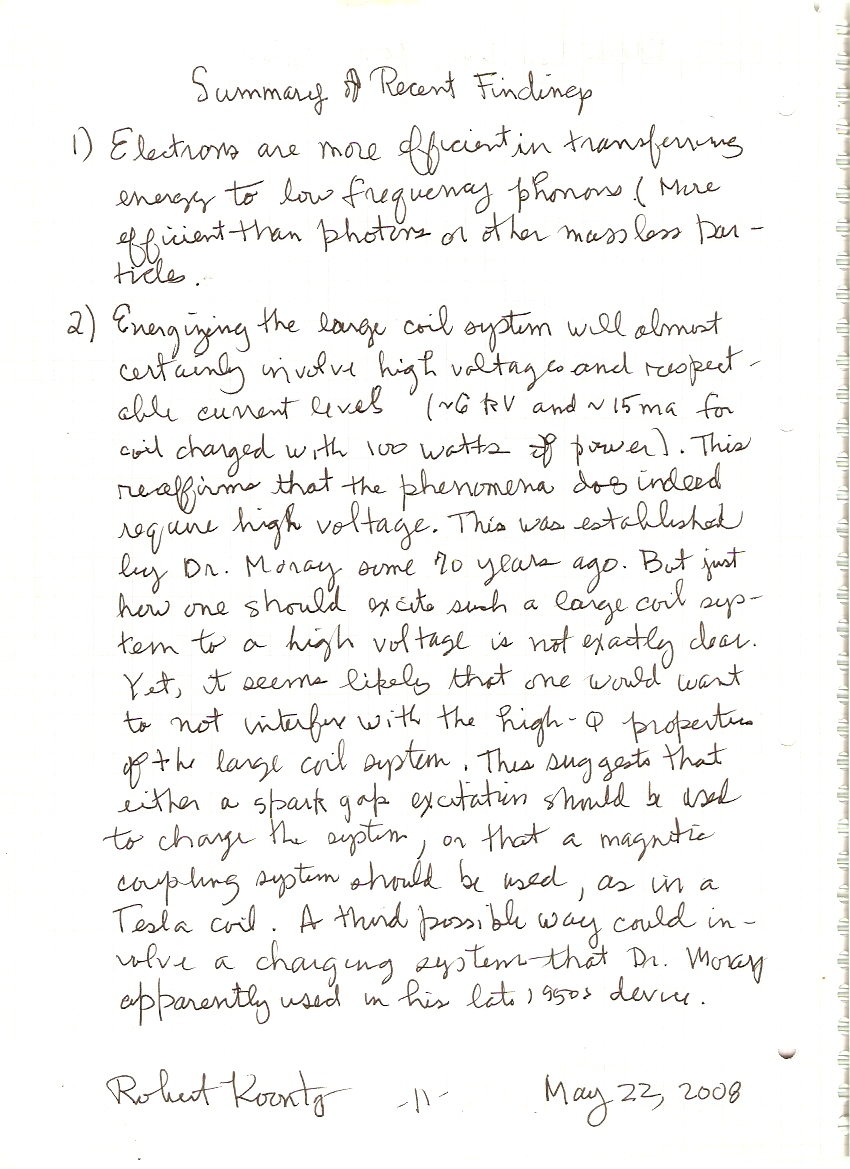 Summary of Recent Findings
1) Electrons are more efficient in transferring
energy to low frequency phonons. (More
efficient than photons or other massless par-
ticles.
2) Energizing the large coil system will almost
certainly involve high voltages and respect-
able current levels (~6 kV and ~15 ma for
coil charged with 100 watts of power). This
reaffirms that the phenomena does indeed
require high voltage. This was established
by Dr. Moray some 70 years ago. But just
how one should excite such a large coil sys-
tem to a high voltage is not exactly clear.
Yet, it seems likely that one would want
to not interfere with the high-Q properties
of the large coil system. This suggests that
either a spark gap excitation should be used
to charge the system, or that a magnetic
coupling system should be used, as in a
Tesla coil. A third possible way could in-
volve a charging system that Dr. Moray
apparently used in his late 1950s device.
Robert Koontz -11- May 22, 2008